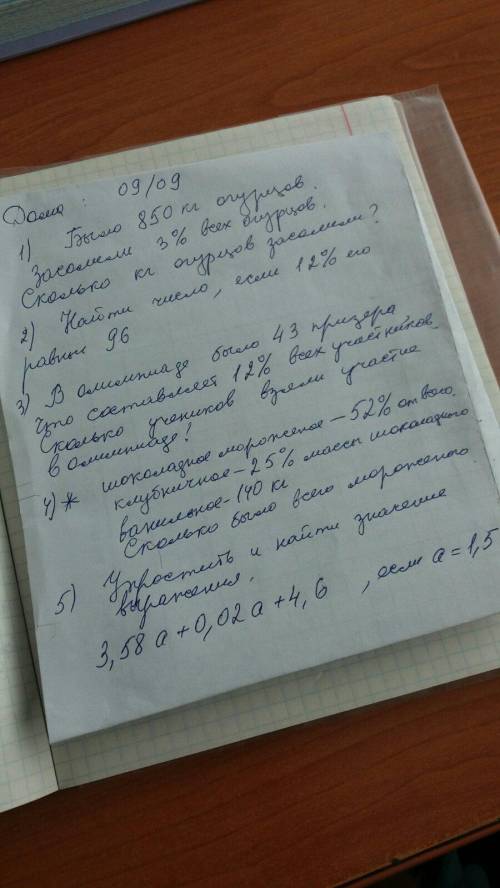 Дома: 09/09
1) Было 850 кг огурцов.
Засолили 3% всех огурцов.
Сколько кг огурцов засолили?
2) Найти число, если 12% его
равны 96
3) В олимпиаде было 43 призера,
что составляет 12% всех участников.
Сколько учеников взяли участие
в олимпиаде?
4)* шоколадное мороженое – 52% от всего.
клубничное – 25% массы шоколадного
ванильное – 140 кг
Сколько было всего мороженого
5) Упростить и найти значение
выражения.
3,58a + 0,02a + 4,6, если a = 1,5